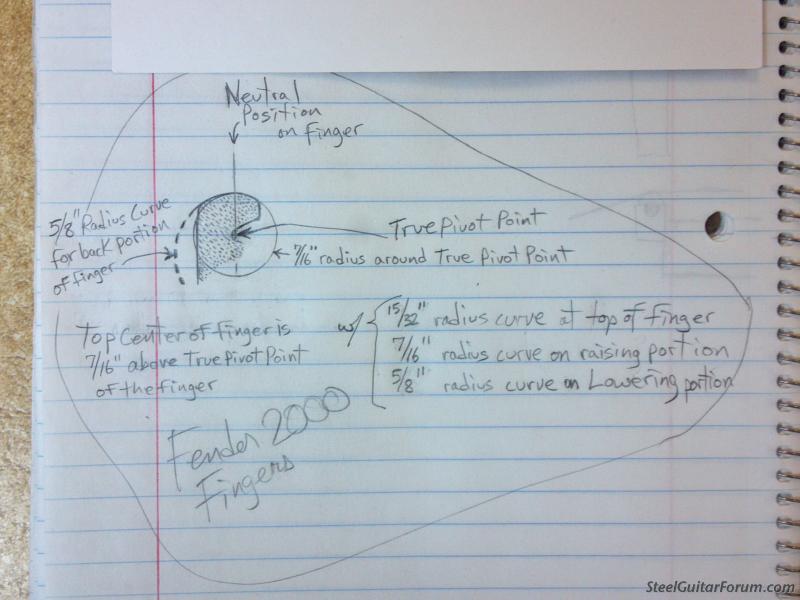 Neutral
Position
on Finger
5/8" Radius Curve
for back portion
of finger
True Pivot Point
7/16" radius around True Pivot Point
Top Center of Finger is
7/16" above True Pivot Point
of the finger
w/
15/32" radius curve at top of finger
7/16" radius curve on raising portion
5/8" radius curve on Lowering portion
Fender 2000
Fingers
SteelGuitarForum.com